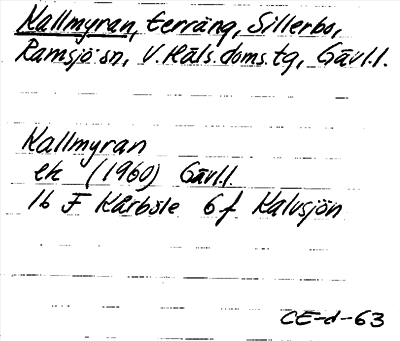 Kallmyran, terräng, Sillerbo,
Ramsjö sn, V. Häls. doms. tg, Gävl.l.
Kallmyran
ek (1960) Gävl.l.
16 F Kårböle 6 f Kalvsjön
CE-d-63